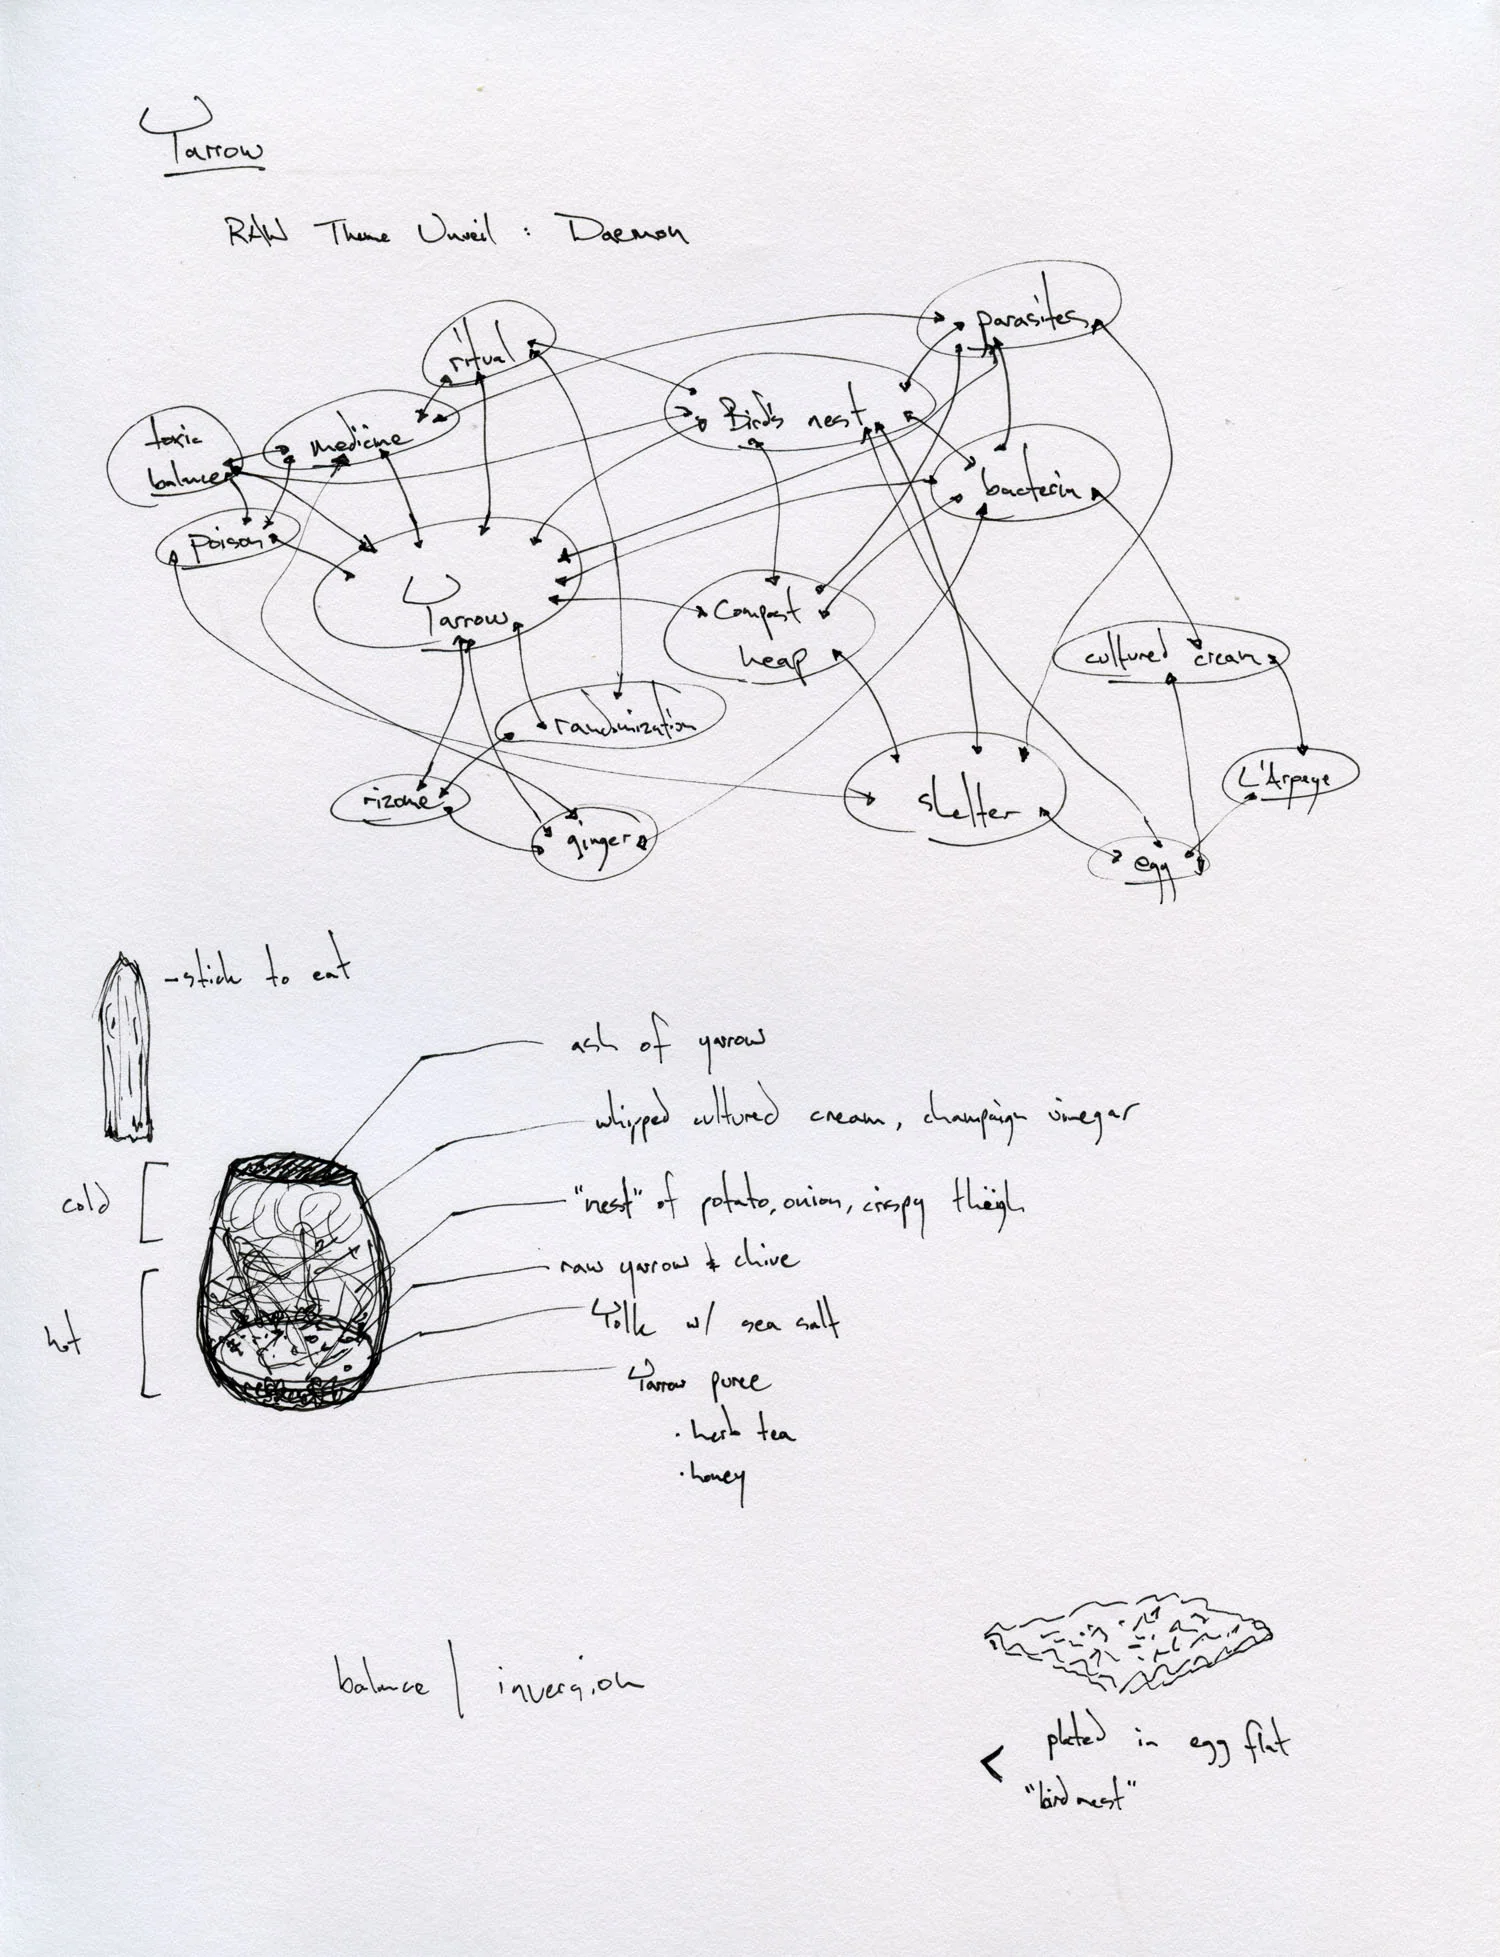 Yarrow
RAW Theme Unveil : Daemon
parasites
ritual
Bird's nest
toxic
balance
medicine
bacteria
poison
Yarrow
Compost
heap
cultured cream
randomization
rizome
ginger
shelter
L'Arpege
egg
-stick to eat
ash of yarrow
whipped cultured cream, champaign vinegar
cold
"nest" of potato, onion, crispy thëigh
raw yarrow & chive
hot
Yolk w/ sea salt
Yarrow puree
· herb tea
· honey
balance / inversion
< plated in egg flat
"bird nest"